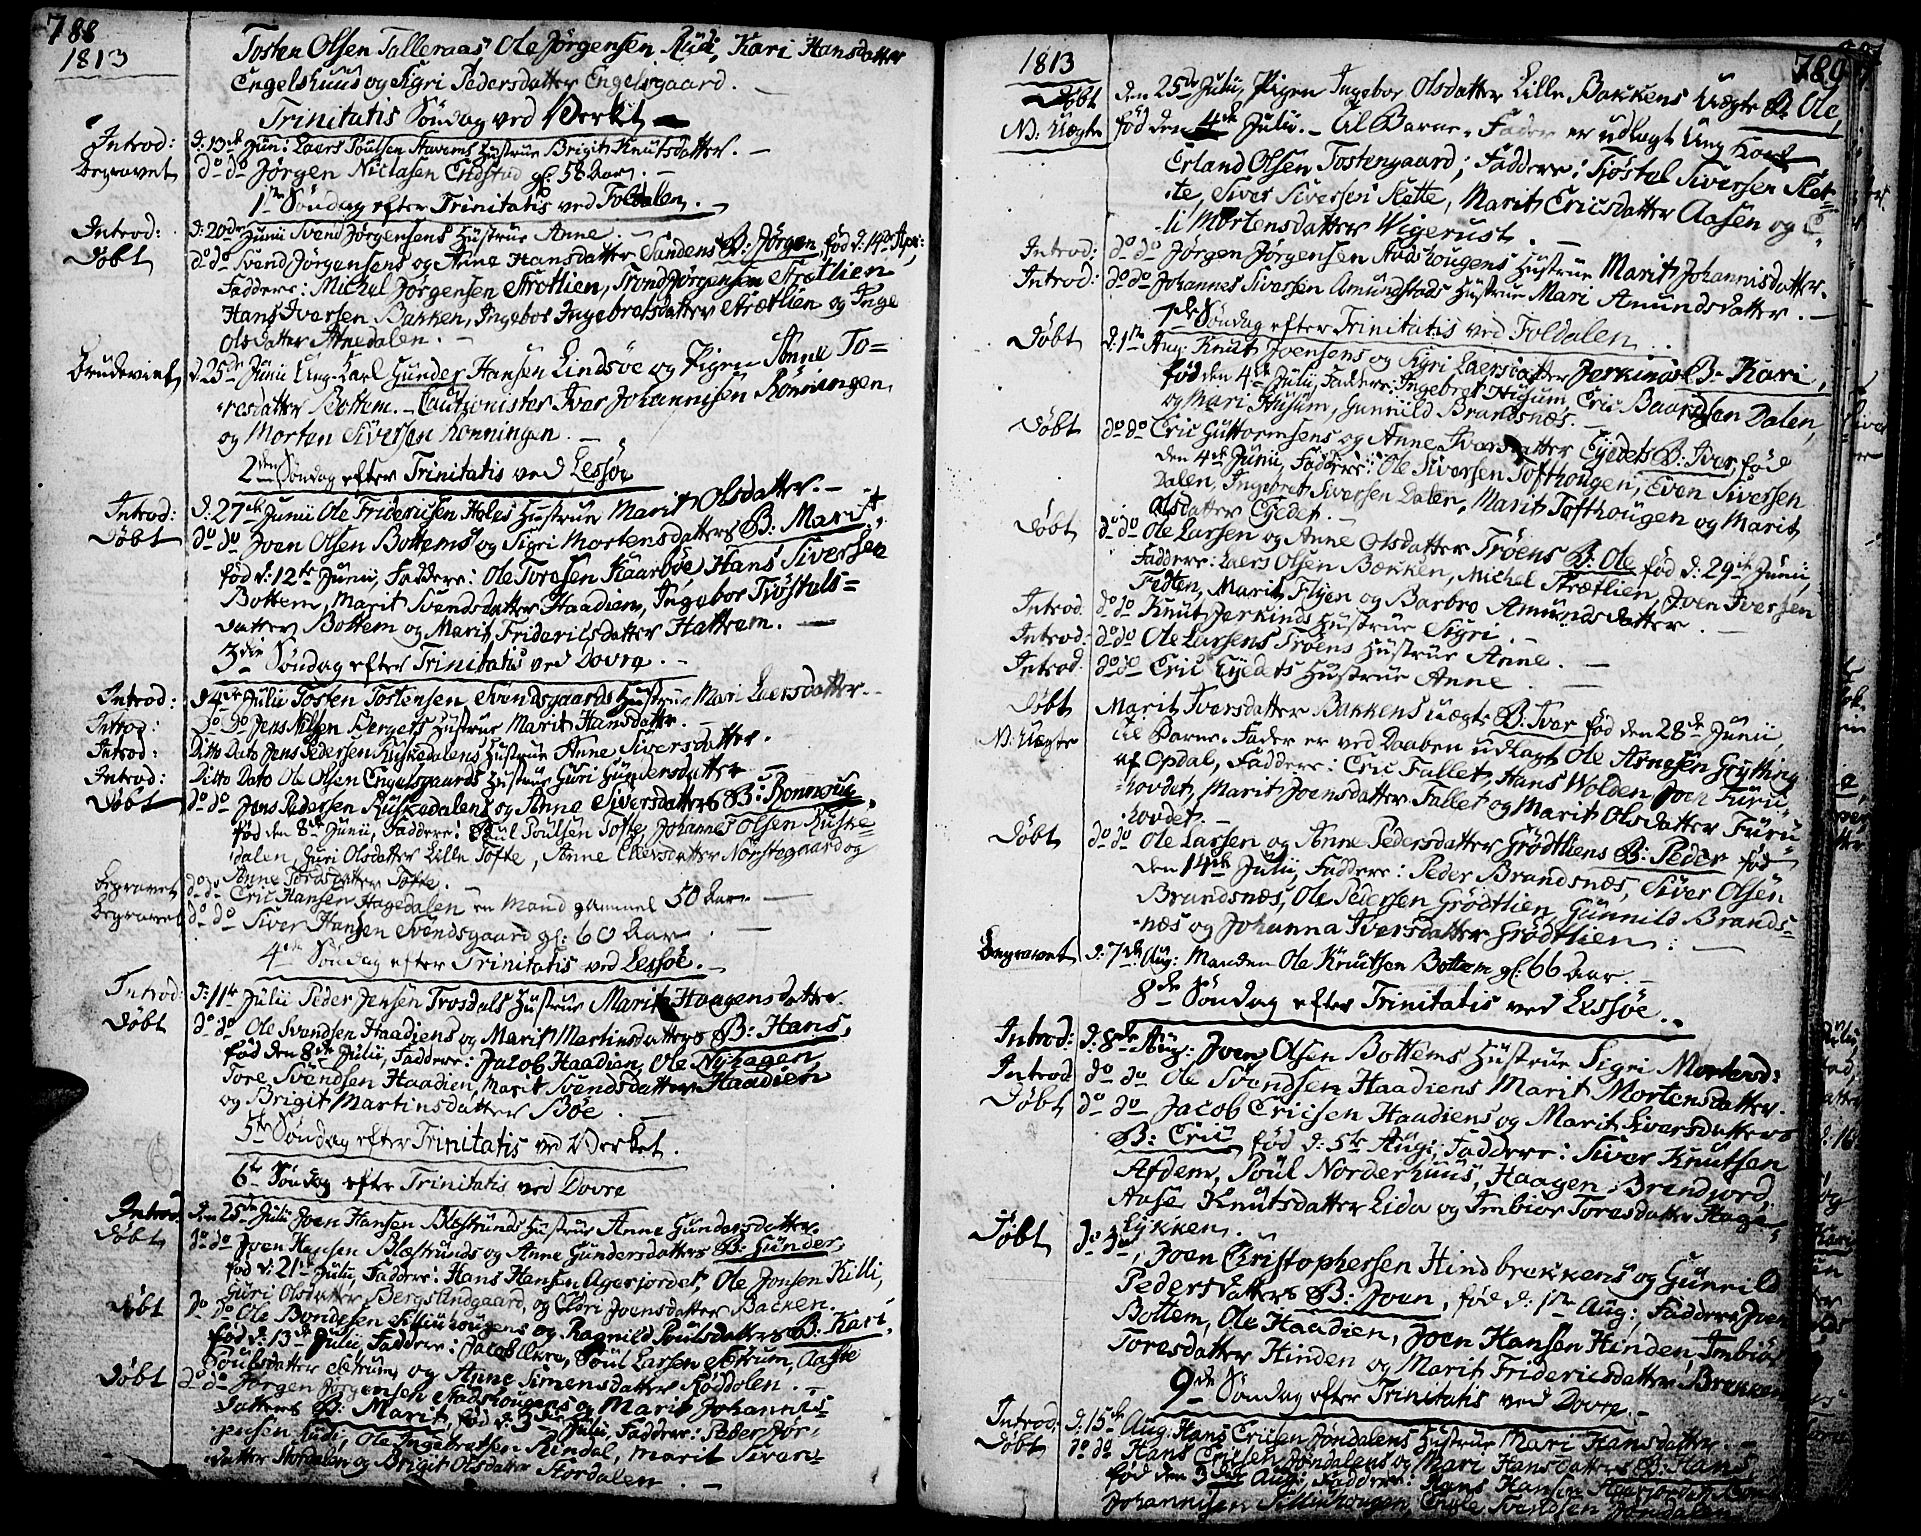 788
1813
Tosten Olsen Talleraas, Ole Jørgensen Rudi, Kari Hansdatter
Engelshuus og Sigri Pedersdatter Engelsgaard.
Trinitatis Søndag ved Verket
Introd: d: 13de Jun: Laers Poulsen Staverns Hustrue Brigit Knutsdatter.
Begravet do do Jørgen Niclasen Endstad gl: 58 Aar.
1ste Søndag efter Trinitatis ved Foldalen.
Introd: d: 20de Junii Svend Jørgensens Hustrue Anne.
Døbt do do Svend Jørgensens og Anne Hansdatter Sundens B: Jørgen, fød d: 14de Apr:
Faddere: Michel Jørgensen Strætlien, Trond Jørgensen Strætlien
Hans Iversen Bakken, Ingebor Ingebretsdatter Strætlien og Inge
Olsdatter Atnedalen.
Brudeviet d. 25de Junii Ung-Karl Gunder Hansen Lindsøe og Pigen Anne To=
resdatter Bottem. Cautionister Iver Johannisen Rønningen
og Morten Siversen Rønningen.
2den Søndag efter Trinitatis ved Lessøe
Introd: d: 27de Junii Ole Fridericsen Holes Hustrue Marit Olsdatter.
Døbt do do Joen Olsen Bottems og Sigri Mortensdatters B: Marit,
fød d: 12te Junii, Faddere: Ole Toresen Kaarbøe Hans Siversen
Bottem, Marit Svendsdatter Haadien, Ingebor Tiøstels=
datter Bottem og Marit Fridericsdatter Hattrem.
3die Søndag efter Trinitatis ved Dovre.
Introd: d 4de Julii Tosten Tostensen Svendsgaards Hustrue Mari Laersdatter.
Introd: do do Jens Nilsen Bergets Hustrue Marit Hansdatter.
Introd: Ditto Dato Jens Pedersen Ruskedalens Hustrue Anne Siversdatter.
Introd: Ditto Dato Ole Olsen Engelsgaards Hustrue Guri Gundersdatter
Døbt do do Jens Pedersen Ruskedalens og Anne Siversdatters B: Ronnoug,
fød den 8de Junii, Faddere: Poul Poulsen Tofte, Johannes Olsen Ruske=
dalen, Guri Olsdatter Lille Tofte, Anne Ellevsdatter Norstegaard og
Anne Toresdatter Tofte.
Begravet do do Eric Hansen Hagedalen en Mand gammel 50 Aar.
Begravet do do Siver Hansen Svendsgaard gl: 60 Aar.
4de Søndag efter Trinitatis ved Lessøe.
Introd: d: 11te Julii Peder Jensen Trosdals Hustrue Marit Haagensdatter.
Døbt do do Ole Svendsen Haadiens og Marit Martinsdatters B: Hans,
fød den 8de Julii, Faddere: Jacob Haadien, Ole Nyhagen,
Tore Svendsen Haadien, Marit Svendsdatter Haadien
og Brigit Martinsdatter Bøe.
5te Søndag efter Trinitatis ved Verket.
6te Søndag efter Trinitatis ved Dovre
Introd den 25de Julii Joen Hansen Blæstrunds Hustrue Anne Gundersdatter.
Døbt do do Joen Hansen Blæstrunds og Anne Gundersdatters B: Gunder,
fød d: 21de Julii, Faddere: Hans Hansen Agerjordet, Ole Jonsen Killi,
Guri Olsdatter Bergslindgaard, og Eldri Joensdatter Backen.
Døbt do do Ole Bondesen Sillimhougens og Ragnild Poulsdatters B: Kari,
fød d: 13de Julii, Faddere: Jacob Ekre, Poul Larsen Østrum, Aaste
Poulsdatter Østrum, og Anne Simensdatter Røddolen.
Døbt do do Jørgen Jørgensen Stadshougens og Marit Johannis=
datters B: Marit, fød d: 3de Julii, Faddere: Peder Jør=
gensen Rudi, Ole Ingebretsen Rindal, Marit Sivers=
datter Stordalen og Brigit Olsdatter Stordalen.
1813
789
Døbt den 25de Julii, Pigen Ingebor Olsdatter Lille Bakkens Uægte B: Ole,
NB: Uægte fød den 4de Julii. Til Barne-Fader er udlagt Ung Karl
Erland Olsen Tostengaard; Faddere: Tjøstel Siversen Slet=
te, Siver Siversen Slette, Marit Ericsdatter Aasen og E=
li Mortensdatter Wigerust.
Introd: do do Jørgen Jørgensen Stadshougens Hustrue Marit Johannisdatter.
Introd: do do Johannes Siversen Amundstads Hustrue Mari Amundsdatter.
7de Søndag efter Trinitatis ved Foldalen.
Døbt d: 1ste Aug: Knut Joensens og Sigri Laersdatter Jerkinds B: Kari,
fød den 4de Julii, Faddere: Ingebret Husum, Eric Baardsen Dalen,
og Mari Husum, Gunnild Brandsnæs.
Døbt do do Eric Guttormsens og Anne Iversdatter Eyedets B: Iver, fød
den 4de Junii, Faddere: Ole Siversen Tofthougen, Even Siversen
Dalen, Ingebret Siversen Dalen, Marit Tofthougen og Marit
Olsdatter Eyedet.
Døbt do do Ole Larsen og Anne Olsdatter Trøens B: Ole fød d: 29de Junii,
Faddere: Laers Olsen Bækken, Michel Strætlien, Joen Iversen
Fedten, Marit Flyen og Barbro Amundsdatter.
Introd. do do Knut Jerkinds Hustrue Sigri.
Introd: do do Ole Larsens Trøens Hustrue Anne.
Introd. do do Eric Eyedets Hustrue Anne.
Døbt Marit Iversdatter Bakkens Uægte B: Iver fød den 28de Junii
NB: Uægte til Barne-Fader er ved Daaben udlagt Ole Arnesen Grytting
af Opdal, Faddere: Eric Fallet, Hans Wolden Joen Furu=
hovdet, Marit Joensdatter Fallet og Marit Olsdatter Furu=
hovdet.
Døbt do do Ole Larsen og Anne Pedersdatter Grødtliens B: Peder fød
den 14de Julii, Faddere: Peder Brandsnæs, Siver Olsen
Brandsnæs, Ole Pedersen Grødtlien, Gunnild Brands=
næs og Johanna Iversdatter Grødtlien.
Begravet d: 7de Aug: Manden Ole Knutsen Bottem gl: 66 Aar.
8de Søndag efter Trinitatis ved Lessøe.
Introd: d: 8de Aug: Joen Olsen Bottems Hustrue Sigri Mortensd:
Introd do do Ole Svendsen Haadiens Marit Mortensdatter.
Døbt do do Jacob Ericsen Haadiens og Marit Siversdatters
B: Eric fød d: 5te Aug: Faddere: Siver Knutsen
Afdem, Poul Norderhuus, Haagen Brendjord,
Aase Knutsdatter Lida og Imbior Toresdatter Hage=
lykken.
Døbt do do, Joen Christophersen Hindbrækkens og Gunnild
Pedersdatters B: Joen, fød d: 1ste Aug: Faddere Joen
Bottem, Ole Haadien, Joen Hansen Hinden, Imbior
Toresdatter Hinden og Marit Fridericsdatter Brekken
9de Søndag efter Trinitatis ved Dovre.
Introd: d: 15de Aug: Hans Ericsen Jøndalens Hustrue Mari Hansdatter.
Døbt do do Hans Ericsen Jøndalens og Mari Hansdatters B: Hans,
fød den 3die Aug: Faddere: Hans Hansen
Johannisen Sillimhougen, Engle Svendsen Jøndalen